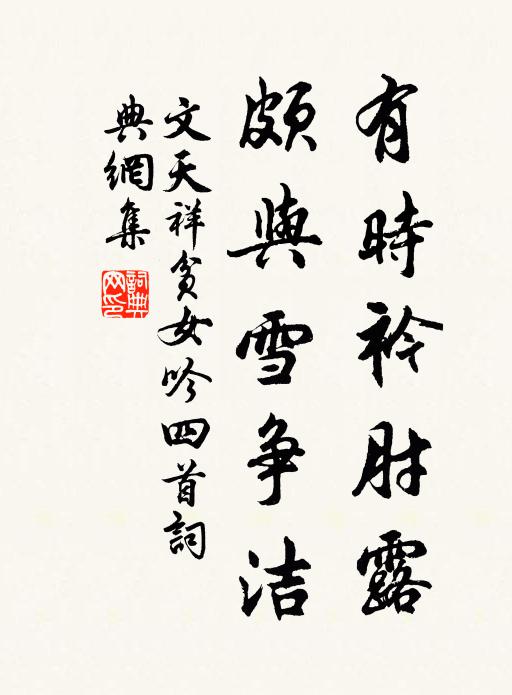 有時衿肘露
頗與雪争洁
文天祥貧女吟四首詞
典網集
詞典網印